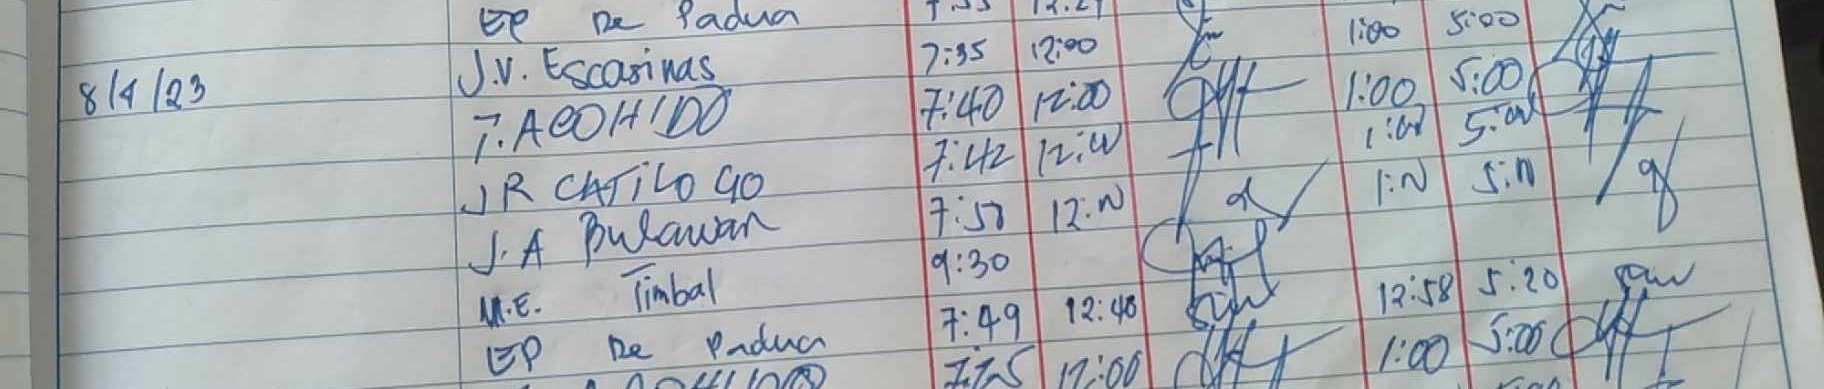 EP De Padua
8/4/23 J.V. Escarinas 7:35 12:00 1:00 5:00
T. ACOHIDO 7:40 12:00 1:00 5:00
JR CATILOGO 7:42 12:00 1:00 5:00
J.A Bulawan 7:58 12:N 1:N 5:N
M.E. Timbal 9:30
EP De Padua 7:49 12:40 12:58 5:20
ACOHIDO 7:25 12:00 1:00 5:00